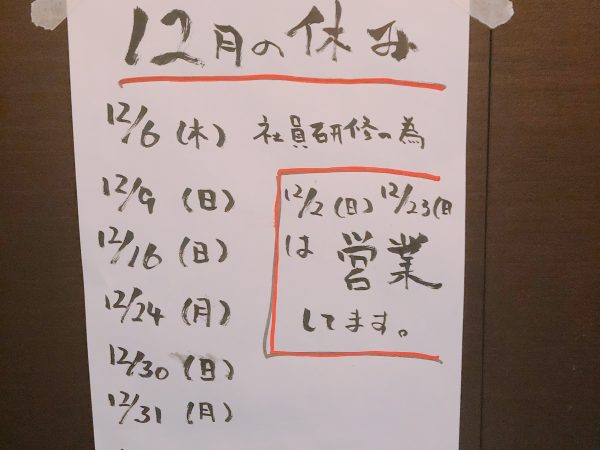 12月の休み
12/6（木） 社員研修の為
12/9（日）
12/16（日）
12/24（月）
12/30（日）
12/31（月）
12/2（日） 12/23（日
は 営業
してます。